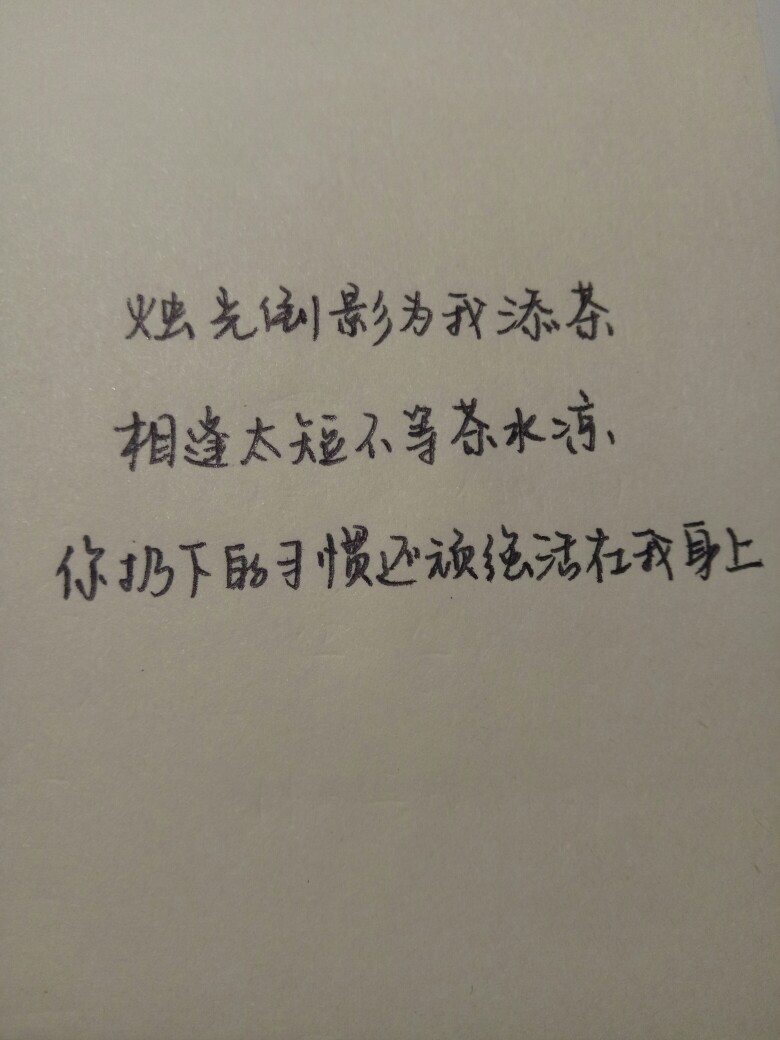 烛光倒影为我添茶
相逢太短不等茶水凉
你扔下的习惯还顽强活在我身上